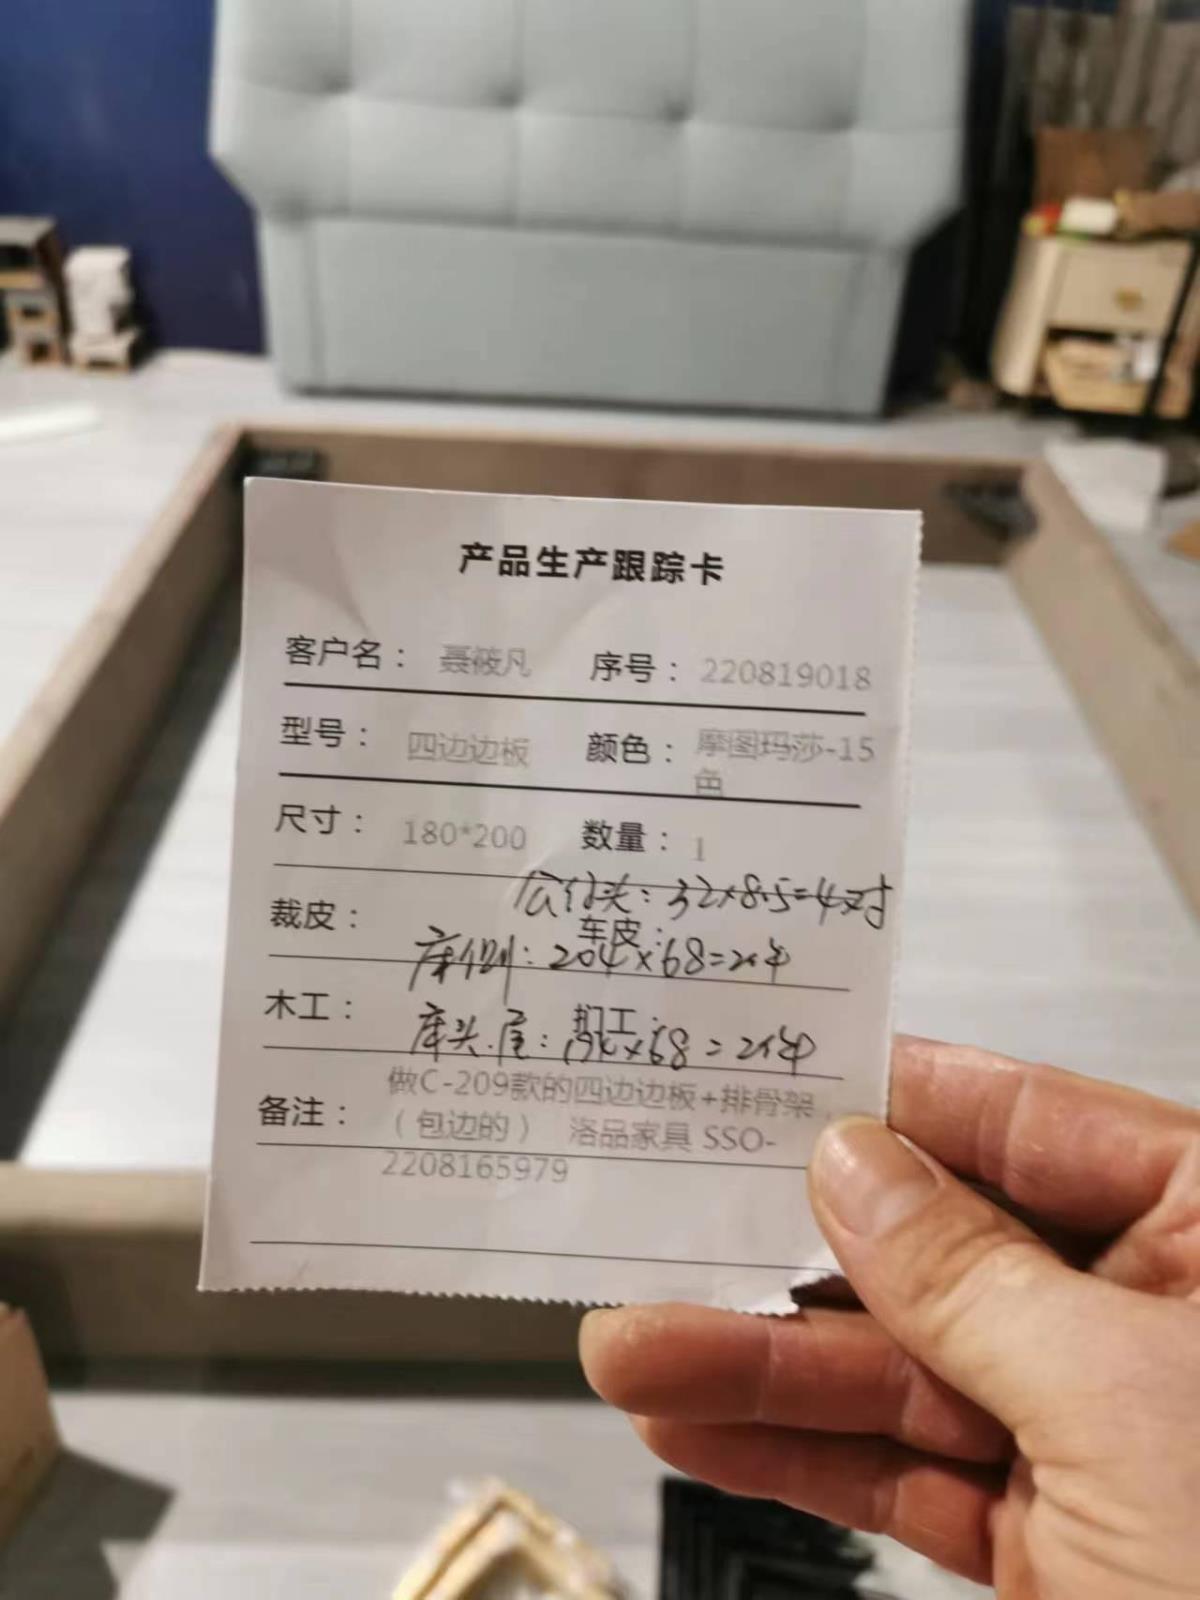 产品生产跟踪卡
客户名： 聂筱凡 序号： 220819018
型号： 四边边板 颜色： 摩图玛莎-15
色
尺寸： 180*200 数量： 1
：32×8.5=4对
裁皮： 车皮：
床侧：204×68=2×中
木工： 扪工：
床头.尾：×68=2×中
做C-209款的四边边板+排骨架，
备注： （包边的） 洛品家具 SSO-
2208165979